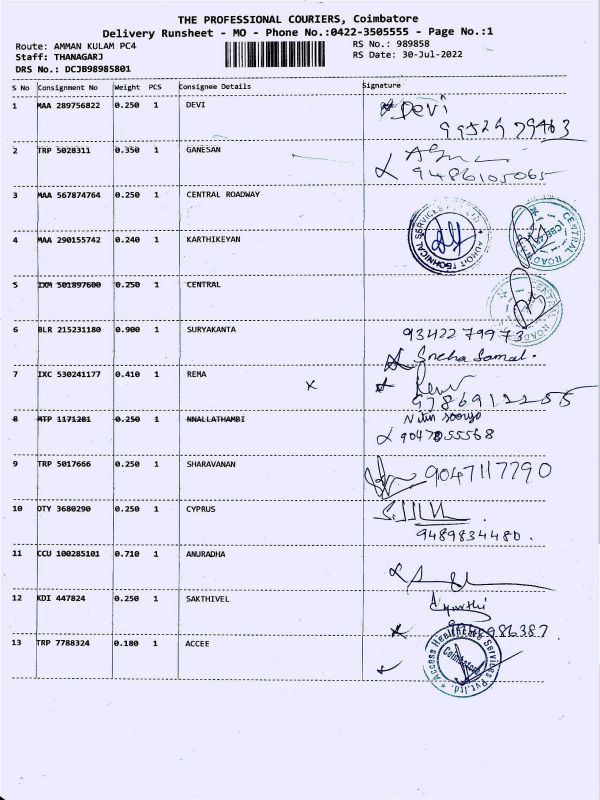 THE PROFESSIONAL COURIERS, Coimbatore
Delivery Runsheet - MO - Phone No.:0422-3505555 - Page No.:1
Route: AMMAN KULAM PC4 RS No.: 989858
Staff: THANAGARJ RS Date: 30-Jul-2022
DRS No.: DCJB98985801
S No Consignment No Weight PCS Consignee Details Signature
1 MAA 289756822 0.250 1 DEVI Devi
2 TRP 5028311 0.350 1 GANESAN
9486105065
3 MAA 567874764 0.250 1 CENTRAL ROADWAY
4 MAA 290155742 0.240 1 KARTHIKEYAN
5 IXM 501897600 0.250 1 CENTRAL
6 BLR 215231180 0.900 1 SURYAKANTA 9342279973
Sneha Samal.
7 IXC 530241177 0.410 1 REMA x
9786912255
8 MTP 1171281 0.250 1 NNALLATHAMBI Nitin
9 TRP 5017666 0.250 1 SHARAVANAN 9047117790
10 OTY 3680290 0.250 1 CYPRUS
9489834480.
11 CCU 100285101 0.710 1 ANURADHA
12 KDI 447824 0.250 1 SAKTHIVEL
13 TRP 7788324 0.180 1 ACCEE
Access Healthcare Services Pvt.ltd.
Coimbatore